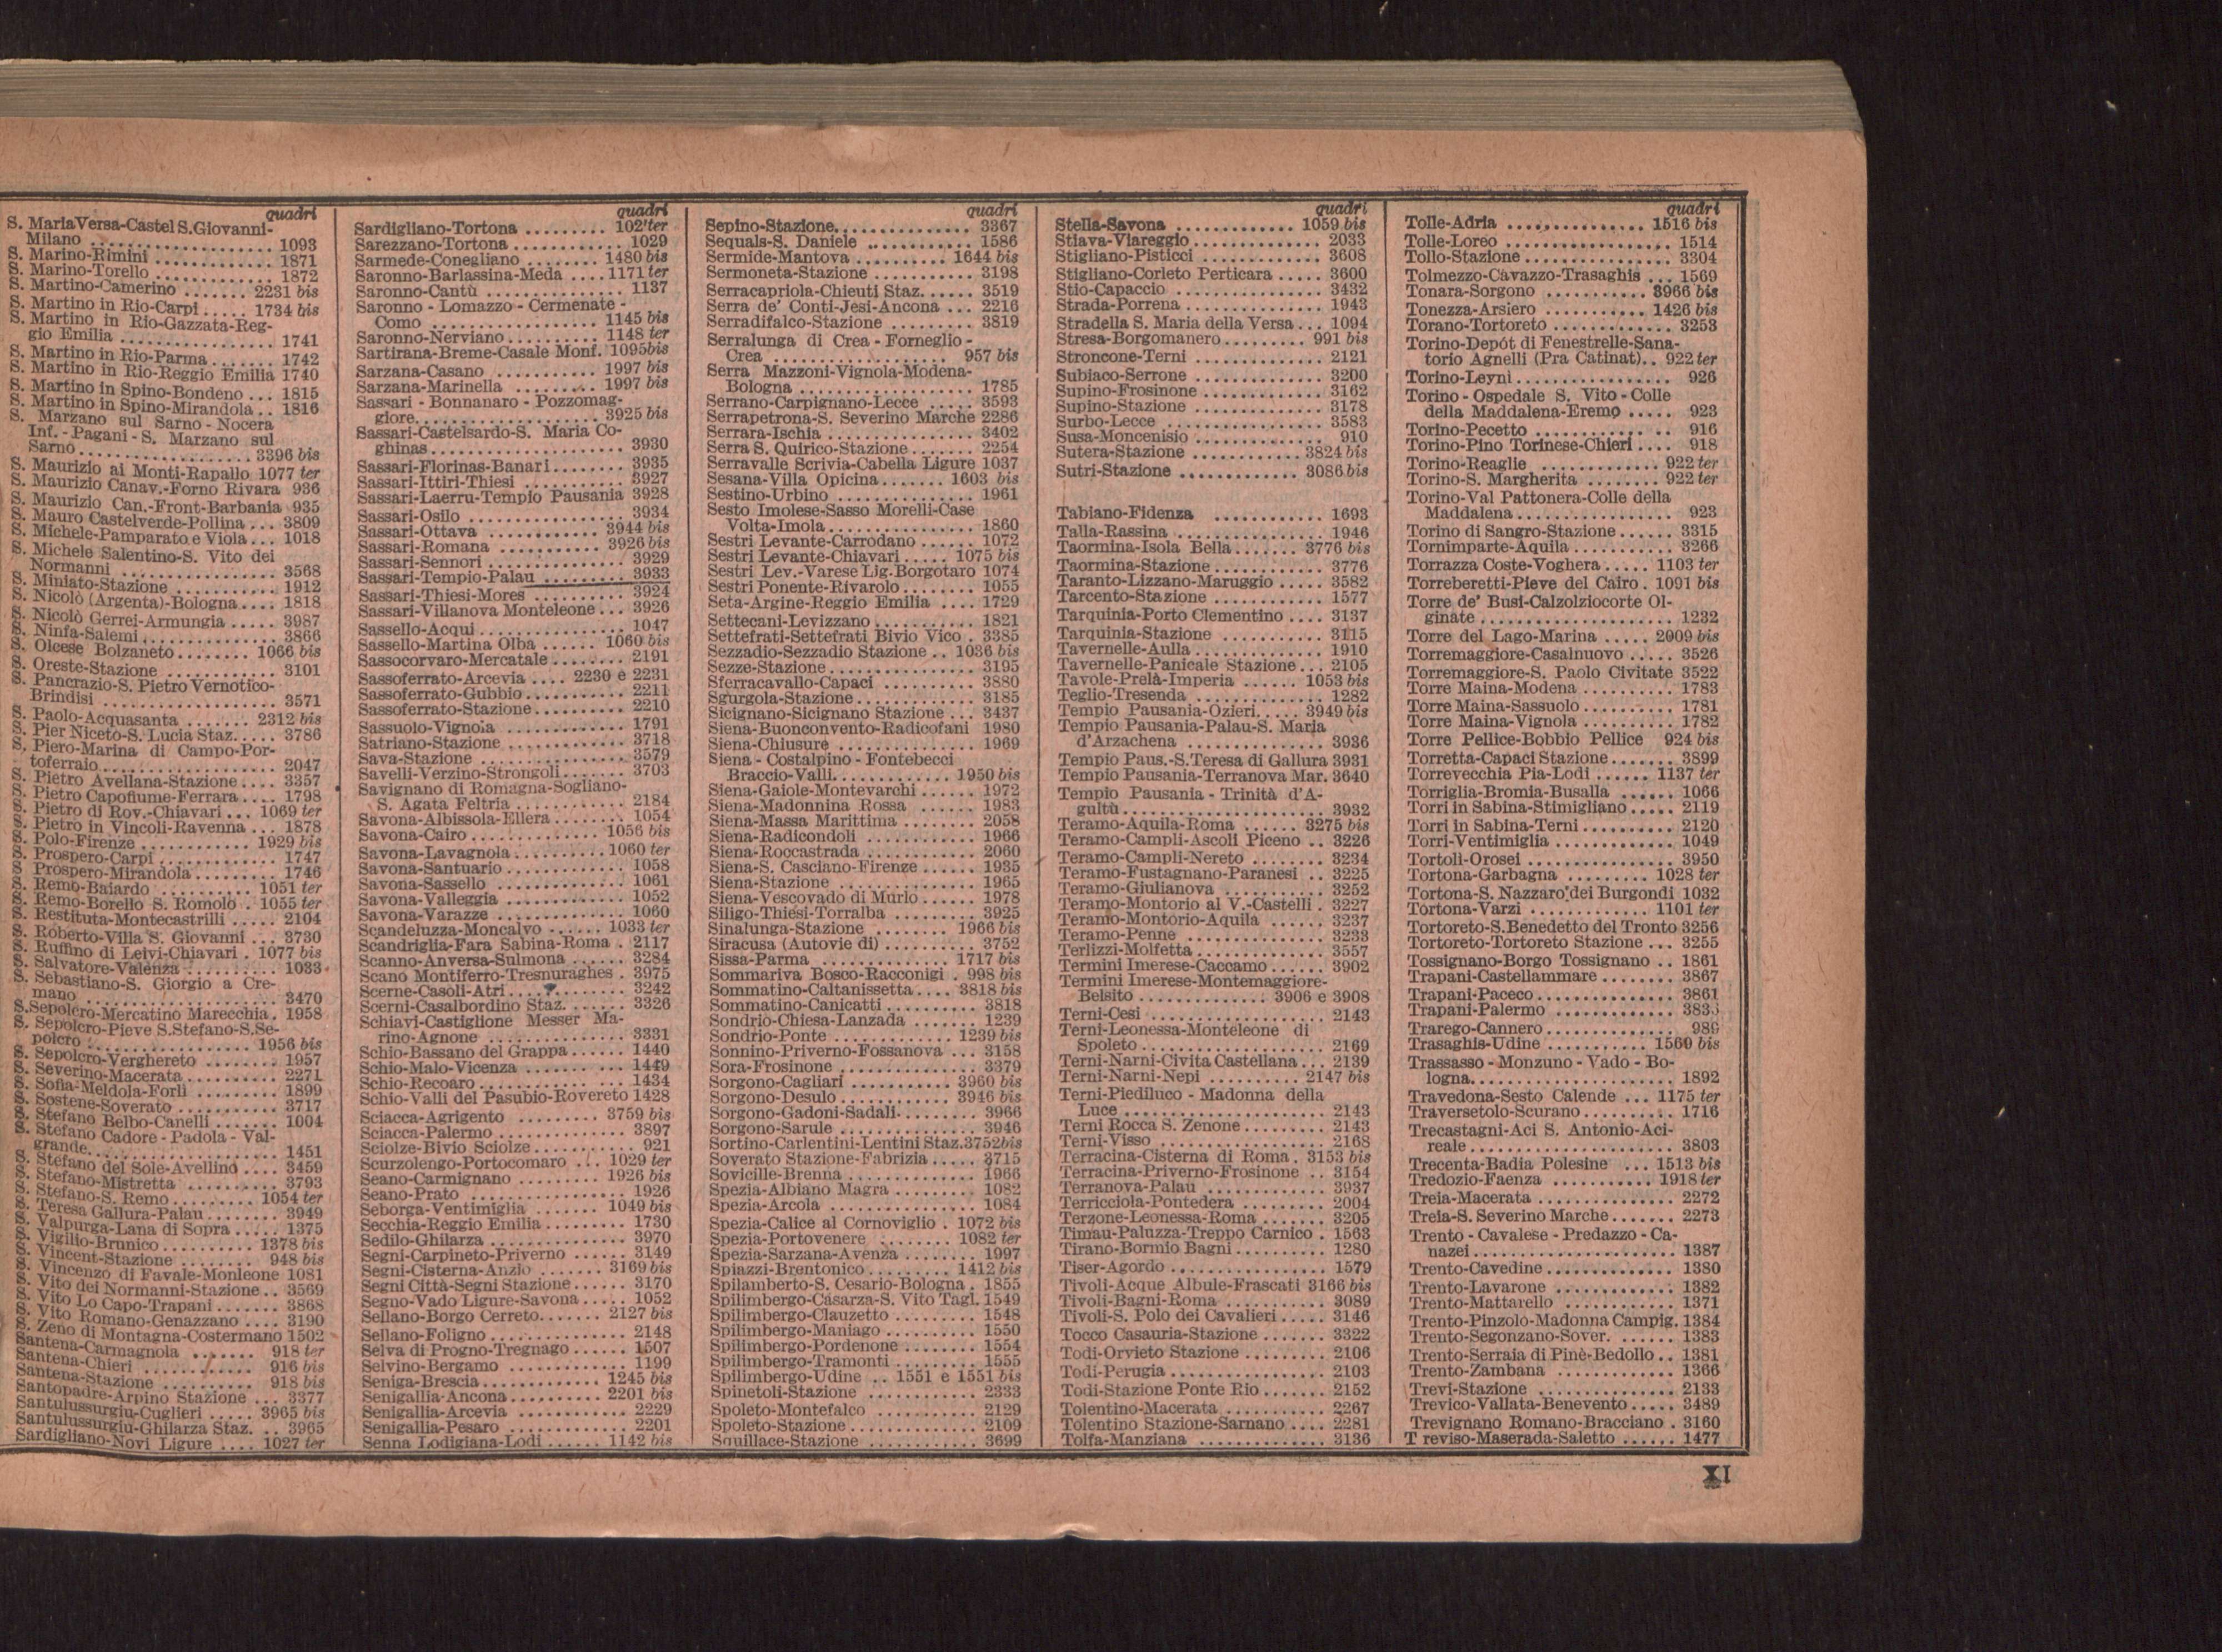 quadri
S. MariaVersa-Castel S.Giovanni-
Milano .................. 1093
S. Marino-Rimini ............. 1871
S. Marino-Torello ............ 1872
S. Martino-Camerino ....... 2231 bis
S. Martino in Rio-Carpi ..... 1734 bis
S. Martino in Rio-Gazzata-Reg-
gio Emilia .................. 1741
S. Martino in Rio-Parma ....... 1742
S. Martino in Rio-Reggio Emilia 1740
S. Martino in Spino-Bondeno ... 1815
S. Martino in Spino-Mirandola .. 1816
S. Marzano sul Sarno - Nocera
Inf. - Pagani - S. Marzano sul
Sarno ................... 3396 bis
S. Maurizio ai Monti-Rapallo 1077 ter
S. Maurizio Canav.-Forno Rivara 936
S. Maurizio Can.-Front-Barbania 935
S. Mauro Castelverde-Pollina ... 3809
S. Michele-Pamparato e Viola ... 1018
S. Michele Salentino-S. Vito dei
Normanni .................. 3568
S. Miniato-Stazione ........... 1912
S. Nicolò (Argenta)-Bologna .... 1818
S. Nicolò Gerrei-Armungia ..... 3987
S. Ninfa-Salemi ............... 3866
S. Olcese Bolzaneto ........ 1066 bis
S. Oreste-Stazione ............ 3101
S. Pancrazio-S. Pietro Vernotico-
Brindisi .................... 3571
S. Paolo-Acquasanta ....... 2312 bis
S. Pier Niceto-S. Lucia Staz. .... 3786
S. Piero-Marina di Campo-Por-
toferraio .................... 2047
S. Pietro Avellana-Stazione .... 3357
S. Pietro Capofiume-Ferrara .... 1798
S. Pietro di Rov.-Chiavari ... 1069 ter
S. Pietro in Vincoli-Ravenna ... 1878
S. Polo-Firenze ............ 1929 bis
S. Prospero-Carpi ............. 1747
S. Prospero-Mirandola ......... 1746
S. Remo-Baiardo .......... 1051 ter
S. Remo-Borello S. Romolo . 1055 ter
S. Restituta-Montecastrilli ..... 2104
S. Roberto-Villa S. Giovanni ... 3730
S. Ruffino di Leivi-Chiavari . 1077 bis
S. Salvatore-Valenza .......... 1033
S. Sebastiano-S. Giorgio a Cre-
mano ...................... 3470
S.Sepolcro-Mercatino Marecchia. 1958
S. Sepolcro-Pieve S.Stefano-S.Se-
polcro .................... 1956 bis
S. Sepolcro-Verghereto ........ 1957
S. Severino-Macerata .......... 2271
S. Sofia-Meldola-Forlì ......... 1899
S. Sostene-Soverato ........... 3717
S. Stefano Belbo-Canelli ....... 1004
S. Stefano Cadore - Padola - Val-
grande ...................... 1451
S. Stefano del Sole-Avellino .... 3459
S. Stefano-Mistretta .......... 3793
S. Stefano-S. Remo ......... 1054 ter
S. Teresa Gallura-Palau ........ 3949
S. Valpurga-Lana di Sopra ..... 1375
S. Vigilio-Brunico .......... 1378 bis
S. Vincent-Stazione ........ 948 bis
S. Vincenzo di Favale-Monleone 1081
S. Vito dei Normanni-Stazione .. 3569
S. Vito Lo Capo-Trapani ....... 3868
S. Vito Romano-Genazzano .... 3190
S. Zeno di Montagna-Costermano 1502
Santena-Carmagnola ....... 918 ter
Santena-Chieri ............ 916 bis
Santena-Stazione .......... 918 bis
Santopadre-Arpino Stazione ... 3377
Santulussurgiu-Cuglieri ..... 3965 bis
Santulussurgiu-Ghilarza Staz. .. 3965
Sardigliano-Novi Ligure .... 1027 ter
quadri
Sardigliano-Tortona ......... 102'ter
Sarezzano-Tortona ............ 1029
Sarmede-Conegliano ........ 1480 bis
Saronno-Barlassina-Meda .... 1171 ter
Saronno-Cantù ................ 1137
Saronno - Lomazzo - Cermenate -
Como ................... 1145 bis
Saronno-Nerviano .......... 1148 ter
Sartirana-Breme-Casale Monf. 1095bis
Sarzana-Casano ........... 1997 bis
Sarzana-Marinella ......... 1997 bis
Sassari - Bonnanaro - Pozzomag-
giore ..................... 3925 bis
Sassari-Castelsardo-S. Maria Co-
ghinas ...................... 3930
Sassari-Florinas-Banari ........ 3935
Sassari-Ittiri-Thiesi ........... 3927
Sassari-Laerru-Tempio Pausania 3928
Sassari-Osilo .................. 3934
Sassari-Ottava ............ 3944 bis
Sassari-Romana ........... 3926 bis
Sassari-Sennori ............... 3929
Sassari-Tempio-Palau ......... 3933
Sassari-Thiesi-Mores ........... 3924
Sassari-Villanova Monteleone ... 3926
Sassello-Acqui ................. 1047
Sassello-Martina Olba ...... 1060 bis
Sassocorvaro-Mercatale ........ 2191
Sassoferrato-Arcevia .... 2230 e 2231
Sassoferrato-Gubbio ........... 2211
Sassoferrato-Stazione .......... 2210
Sassuolo-Vignola ............. 1791
Satriano-Stazione ............. 3718
Sava-Stazione ................ 3579
Savelli-Verzino-Strongoli ....... 3703
Savignano di Romagna-Sogliano-
S. Agata Feltria ............ 2184
Savona-Albissola-Ellera ........ 1054
Savona-Cairo .............. 1056 bis
Savona-Lavagnola .......... 1060 ter
Savona-Santuario ............. 1058
Savona-Sassello .............. 1061
Savona-Valleggia ............. 1052
Savona-Varazze .............. 1060
Scandeluzza-Moncalvo ...... 1033 ter
Scandriglia-Fara Sabina-Roma . 2117
Scanno-Anversa-Sulmona ...... 3284
Scano Montiferro-Tresnuraghes . 3975
Scerne-Casoli-Atri ............. 3242
Scerni-Casalbordino Staz. ...... 3326
Schiavi-Castiglione Messer Ma-
rino-Agnone ................ 3331
Schio-Bassano del Grappa ...... 1440
Schio-Malo-Vicenza ........... 1449
Schio-Recoaro ................ 1434
Schio-Valli del Pasubio-Rovereto 1428
Sciacca-Agrigento .......... 3759 bis
Sciacca-Palermo .............. 3897
Sciolze-Bivio Sciolze ........... 921
Scurzolengo-Portocomaro ... 1029 ter
Seano-Carmignano ......... 1926 bis
Seano-Prato .................. 1926
Seborga-Ventimiglia ........ 1049 bis
Secchia-Reggio Emilia ......... 1730
Sedilo-Ghilarza ............... 3970
Segni-Carpineto-Priverno ...... 3149
Segni-Cisterna-Anzio ....... 3169 bis
Segni Città-Segni Stazione ...... 3170
Segno-Vado Ligure-Savona ..... 1052
Sellano-Borgo Cerreto ....... 2127 bis
Sellano-Foligno ............... 2148
Selva di Progno-Tregnago ...... 1507
Selvino-Bergamo ............. 1199
Seniga-Brescia ............. 1245 bis
Senigallia-Ancona .......... 2201 bis
Senigallia-Arcevia ............ 2229
Senigallia-Pesaro ............. 2201
Senna Lodigiana-Lodi ...... 1142 bis
quadri
Sepino-Stazione ............... 3367
Sequals-S. Daniele ............ 1586
Sermide-Mantova .......... 1644 bis
Sermoneta-Stazione ........... 3198
Serracapriola-Chieuti Staz. ..... 3519
Serra de' Conti-Jesi-Ancona ... 2216
Serradifalco-Stazione ......... 3819
Serralunga di Crea - Forneglio -
Crea .................. 957 bis
Serra Mazzoni-Vignola-Modena-
Bologna .................... 1785
Serrano-Carpignano-Lecce ..... 3593
Serrapetrona-S. Severino Marche 2286
Serrara-Ischia ................ 3402
Serra S. Quirico-Stazione ....... 2254
Serravalle Scrivia-Cabella Ligure 1037
Sesana-Villa Opicina ....... 1603 bis
Sestino-Urbino ............... 1961
Sesto Imolese-Sasso Morelli-Case
Volta-Imola ................. 1860
Sestri Levante-Carrodano ...... 1072
Sestri Levante-Chiavari ..... 1075 bis
Sestri Lev.-Varese Lig.Borgotaro 1074
Sestri Ponente-Rivarolo ........ 1055
Seta-Argine-Reggio Emilia .... 1729
Settecani-Levizzano ........... 1821
Settefrati-Settefrati Bivio Vico . 3385
Sezzadio-Sezzadio Stazione .. 1036 bis
Sezze-Stazione ................ 3195
Sferracavallo-Capaci .......... 3880
Sgurgola-Stazione ............. 3185
Sicignano-Sicignano Stazione ... 3437
Siena-Buonconvento-Radicofani 1980
Siena-Chiusure ............... 1969
Siena - Costalpino - Fontebecci
Braccio-Valli ............. 1950 bis
Siena-Gaiole-Montevarchi ...... 1972
Siena-Madonnina Rossa ...... 1983
Siena-Massa Marittima ........ 2058
Siena-Radicondoli ............ 1966
Siena-Roccastrada ............ 2060
Siena-S. Casciano-Firenze ...... 1935
Siena-Stazione ............... 1965
Siena-Vescovado di Murlo ...... 1978
Siligo-Thiesi-Torralba ......... 3925
Sinalunga-Stazione ........ 1966 bis
Siracusa (Autovie di) .......... 3752
Sissa-Parma .............. 1717 bis
Sommariva Bosco-Racconigi . 998 bis
Sommatino-Caltanissetta .... 3818 bis
Sommatino-Canicatti ........... 3818
Sondrio-Chiesa-Lanzada ....... 1239
Sondrio-Ponte ............ 1239 bis
Sonnino-Priverno-Fossanova ... 3158
Sora-Frosinone ............... 3379
Sorgono-Cagliari ........... 3960 bis
Sorgono-Desulo ............ 3946 bis
Sorgono-Gadoni-Sadali ........ 3966
Sorgono-Sarule ............... 3946
Sortino-Carlentini-Lentini Staz.3752bis
Soverato Stazione-Fabrizia ..... 3715
Sovicille-Brenna .............. 1966
Spezia-Albiano Magra ......... 1082
Spezia-Arcola ................ 1084
Spezia-Calice al Cornoviglio . 1072 bis
Spezia-Portovenere ........ 1082 ter
Spezia-Sarzana-Avenza ........ 1997
Spiazzi-Brentonico .......... 1412 bis
Spilamberto-S. Cesario-Bologna . 1855
Spilimbergo-Casarza-S. Vito Tagl. 1549
Spilimbergo-Clauzetto ......... 1548
Spilimbergo-Maniago .......... 1550
Spilimbergo-Pordenone ........ 1554
Spilimbergo-Tramonti ......... 1555
Spilimbergo-Udine .. 1551 e 1551 bis
Spinetoli-Stazione ............ 2333
Spoleto-Montefalco ........... 2129
Spoleto-Stazione .............. 2109
Squillace-Stazione ............ 3699
quadri
Stella-Savona ............. 1059 bis
Stiava-Viareggio .............. 2033
Stigliano-Pisticci ............. 3608
Stigliano-Corleto Perticara ..... 3600
Stio-Capaccio ................ 3432
Strada-Porrena ............... 1943
Stradella S. Maria della Versa ... 1094
Stresa-Borgomanero ......... 991 bis
Stroncone-Terni .............. 2121
Subiaco-Serrone .............. 3200
Supino-Frosinone ............. 3162
Supino-Stazione .............. 3178
Surbo-Lecce .................. 3583
Susa-Moncenisio .............. 910
Sutera-Stazione ............ 3824 bis
Sutri-Stazione ............. 3086 bis
Tabiano-Fidenza ............ 1693
Talla-Rassina ................. 1946
Taormina-Isola Bella ....... 3776 bis
Taormina-Stazione ............ 3776
Taranto-Lizzano-Maruggio ..... 3582
Tarcento-Stazione ............ 1577
Tarquinia-Porto Clementino .... 3137
Tarquinia-Stazione ........... 3115
Tavernelle-Aulla .............. 1910
Tavernelle-Panicale Stazione ... 2105
Tavole-Prelà-Imperia ...... 1053 bis
Teglio-Tresenda .............. 1282
Tempio Pausania-Ozieri ..... 3949 bis
Tempio Pausania-Palau-S. Maria
d'Arzachena ............... 3936
Tempio Paus.-S.Teresa di Gallura 3931
Tempio Pausania-Terranova Mar. 3640
Tempio Pausania - Trinità d'A-
gultù ...................... 3932
Teramo-Aquila-Roma ...... 3275 bis
Teramo-Campli-Ascoli Piceno .. 3226
Teramo-Campli-Nereto ........ 3234
Teramo-Fustagnano-Paranesi .. 3225
Teramo-Giulianova ........... 3252
Teramo-Montorio al V.-Castelli . 3227
Teramo-Montorio-Aquila ...... 3237
Teramo-Penne ............... 3233
Terlizzi-Molfetta .............. 3557
Termini Imerese-Caccamo ...... 3902
Termini Imerese-Montemaggiore-
Belsito .............. 3906 e 3908
Terni-Cesi .................... 2143
Terni-Leonessa-Monteleone di
Spoleto .................... 2169
Terni-Narni-Civita Castellana ... 2139
Terni-Narni-Nepi .......... 2147 bis
Terni-Piediluco - Madonna della
Luce ...................... 2143
Terni Rocca S. Zenone ......... 2143
Terni-Visso .................. 2168
Terracina-Cisterna di Roma . 3153 bis
Terracina-Priverno-Frosinone .. 3154
Terranova-Palau ............. 3937
Terricciola-Pontedera ......... 2004
Terzone-Leonessa-Roma ....... 3205
Timau-Paluzza-Treppo Carnico . 1563
Tirano-Bormio Bagni .......... 1280
Tiser-Agordo ................. 1579
Tivoli-Acque Albule-Frascati 3166 bis
Tivoli-Bagni-Roma ........... 3089
Tivoli-S. Polo dei Cavalieri ..... 3146
Tocco Casauria-Stazione ....... 3322
Todi-Orvieto Stazione ......... 2106
Todi-Perugia ................. 2103
Todi-Stazione Ponte Rio ....... 2152
Tolentino-Macerata ........... 2267
Tolentino Stazione-Sarnano .... 2281
Tolfa-Manziana .............. 3136
quadri
Tolle-Adria ................ 1516 bis
Tolle-Loreo .................. 1514
Tollo-Stazione ................ 3304
Tolmezzo-Cavazzo-Trasaghis ... 1569
Tonara-Sorgono ........... 3966 bis
Tonezza-Arsiero ........... 1426 bis
Torano-Tortoreto ............. 3253
Torino-Depót di Fenestrelle-Sana-
torio Agnelli (Pra Catinat).. 922 ter
Torino-Leynì ................. 926
Torino - Ospedale S. Vito - Colle
della Maddalena-Eremo ..... 923
Torino-Pecetto ............... 916
Torino-Pino Torinese-Chieri .... 918
Torino-Reaglie ............. 922 ter
Torino-S. Margherita ........ 922 ter
Torino-Val Pattonera-Colle della
Maddalena ................. 923
Torino di Sangro-Stazione ...... 3315
Tornimparte-Aquila ........... 3266
Torrazza Coste-Voghera ..... 1103 ter
Torreberetti-Pieve del Cairo . 1091 bis
Torre de' Busi-Calzolziocorte Ol-
ginate ..................... 1232
Torre del Lago-Marina ..... 2009 bis
Torremaggiore-Casalnuovo ..... 3526
Torremaggiore-S. Paolo Civitate 3522
Torre Maina-Modena .......... 1783
Torre Maina-Sassuolo .......... 1781
Torre Maina-Vignola .......... 1782
Torre Pellice-Bobbio Pellice 924 bis
Torretta-Capaci Stazione ....... 3899
Torrevecchia Pia-Lodi ...... 1137 ter
Torriglia-Bromia-Busalla ...... 1066
Torri in Sabina-Stimigliano ..... 2119
Torri in Sabina-Terni .......... 2120
Torri-Ventimiglia ............. 1049
Tortolì-Orosei ................ 3950
Tortona-Garbagna ......... 1028 ter
Tortona-S. Nazzaro dei Burgondi 1032
Tortona-Varzi ............. 1101 ter
Tortoreto-S.Benedetto del Tronto 3256
Tortoreto-Tortoreto Stazione ... 3255
Tossignano-Borgo Tossignano .. 1861
Trapani-Castellammare ........ 3867
Trapani-Paceco ............... 3861
Trapani-Palermo .............
Trarego-Cannero .............
Trasaghis-Udine ........... 1560 bis
Trassasso - Monzuno - Vado - Bo-
logna ...................... 1892
Travedona-Sesto Calende ... 1175 ter
Traversetolo-Scurano .......... 1716
Trecastagni-Aci S. Antonio-Aci-
reale ...................... 3803
Trecenta-Badia Polesine ... 1513 bis
Tredozio-Faenza ........... 1918 ter
Treia-Macerata ............... 2272
Treia-S. Severino Marche ....... 2273
Trento - Cavalese - Predazzo - Ca-
nazei ...................... 1387
Trento-Cavedine .............. 1380
Trento-Lavarone ............. 1382
Trento-Mattarello ............ 1371
Trento-Pinzolo-Madonna Campig. 1384
Trento-Segonzano-Sover. ...... 1383
Trento-Serraia di Pinè-Bedollo .. 1381
Trento-Zambana ............. 1366
Trevi-Stazione ............... 2133
Trevico-Vallata-Benevento ..... 3489
Trevignano Romano-Bracciano . 3160
T reviso-Maserada-Saletto ...... 1477
XI